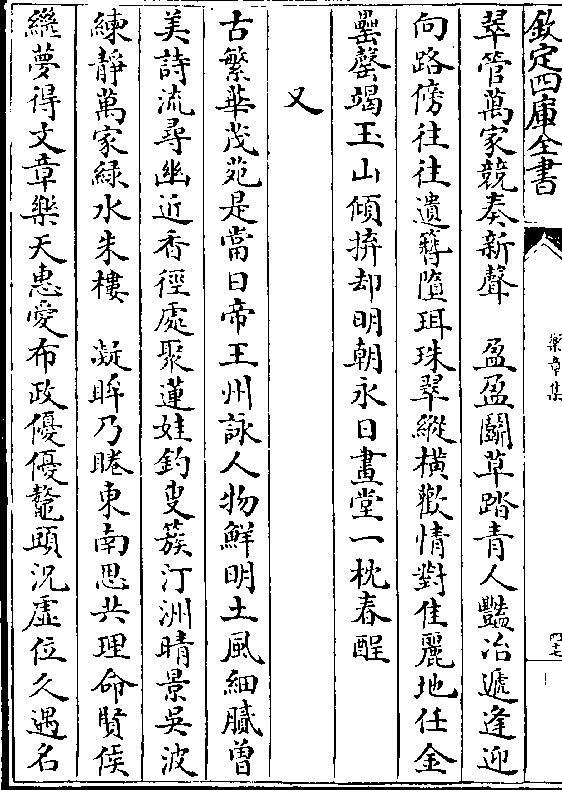 欽定四庫全書
樂章集
四十七
翠管萬家競奏新聲　盈盈鬭草踏青人豔冶遞逢迎
向路傍往往遺簪墮珥珠翠縱橫歡情對佳麗地任金
罍罄竭玉山傾拚却明朝永日畫堂一枕春酲
又
古繁華茂苑是當日帝王州詠人物鮮明土風細膩曽
美詩流尋幽近香徑處聚蓮娃釣叟簇汀洲晴景吳波
練靜萬家緑水朱樓　凝眸乃睠東南思共理命賢侯
繼夢得文章樂天惠愛布政優優鼇頭況虛位久遇名